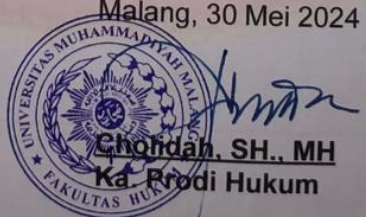 Malang, 30 Mei 2024
UNIVERSITAS MUHAMMADIYAH MALANG
FAKULTAS HUKUM
Cholidah, SH., MH
Ka. Prodi Hukum